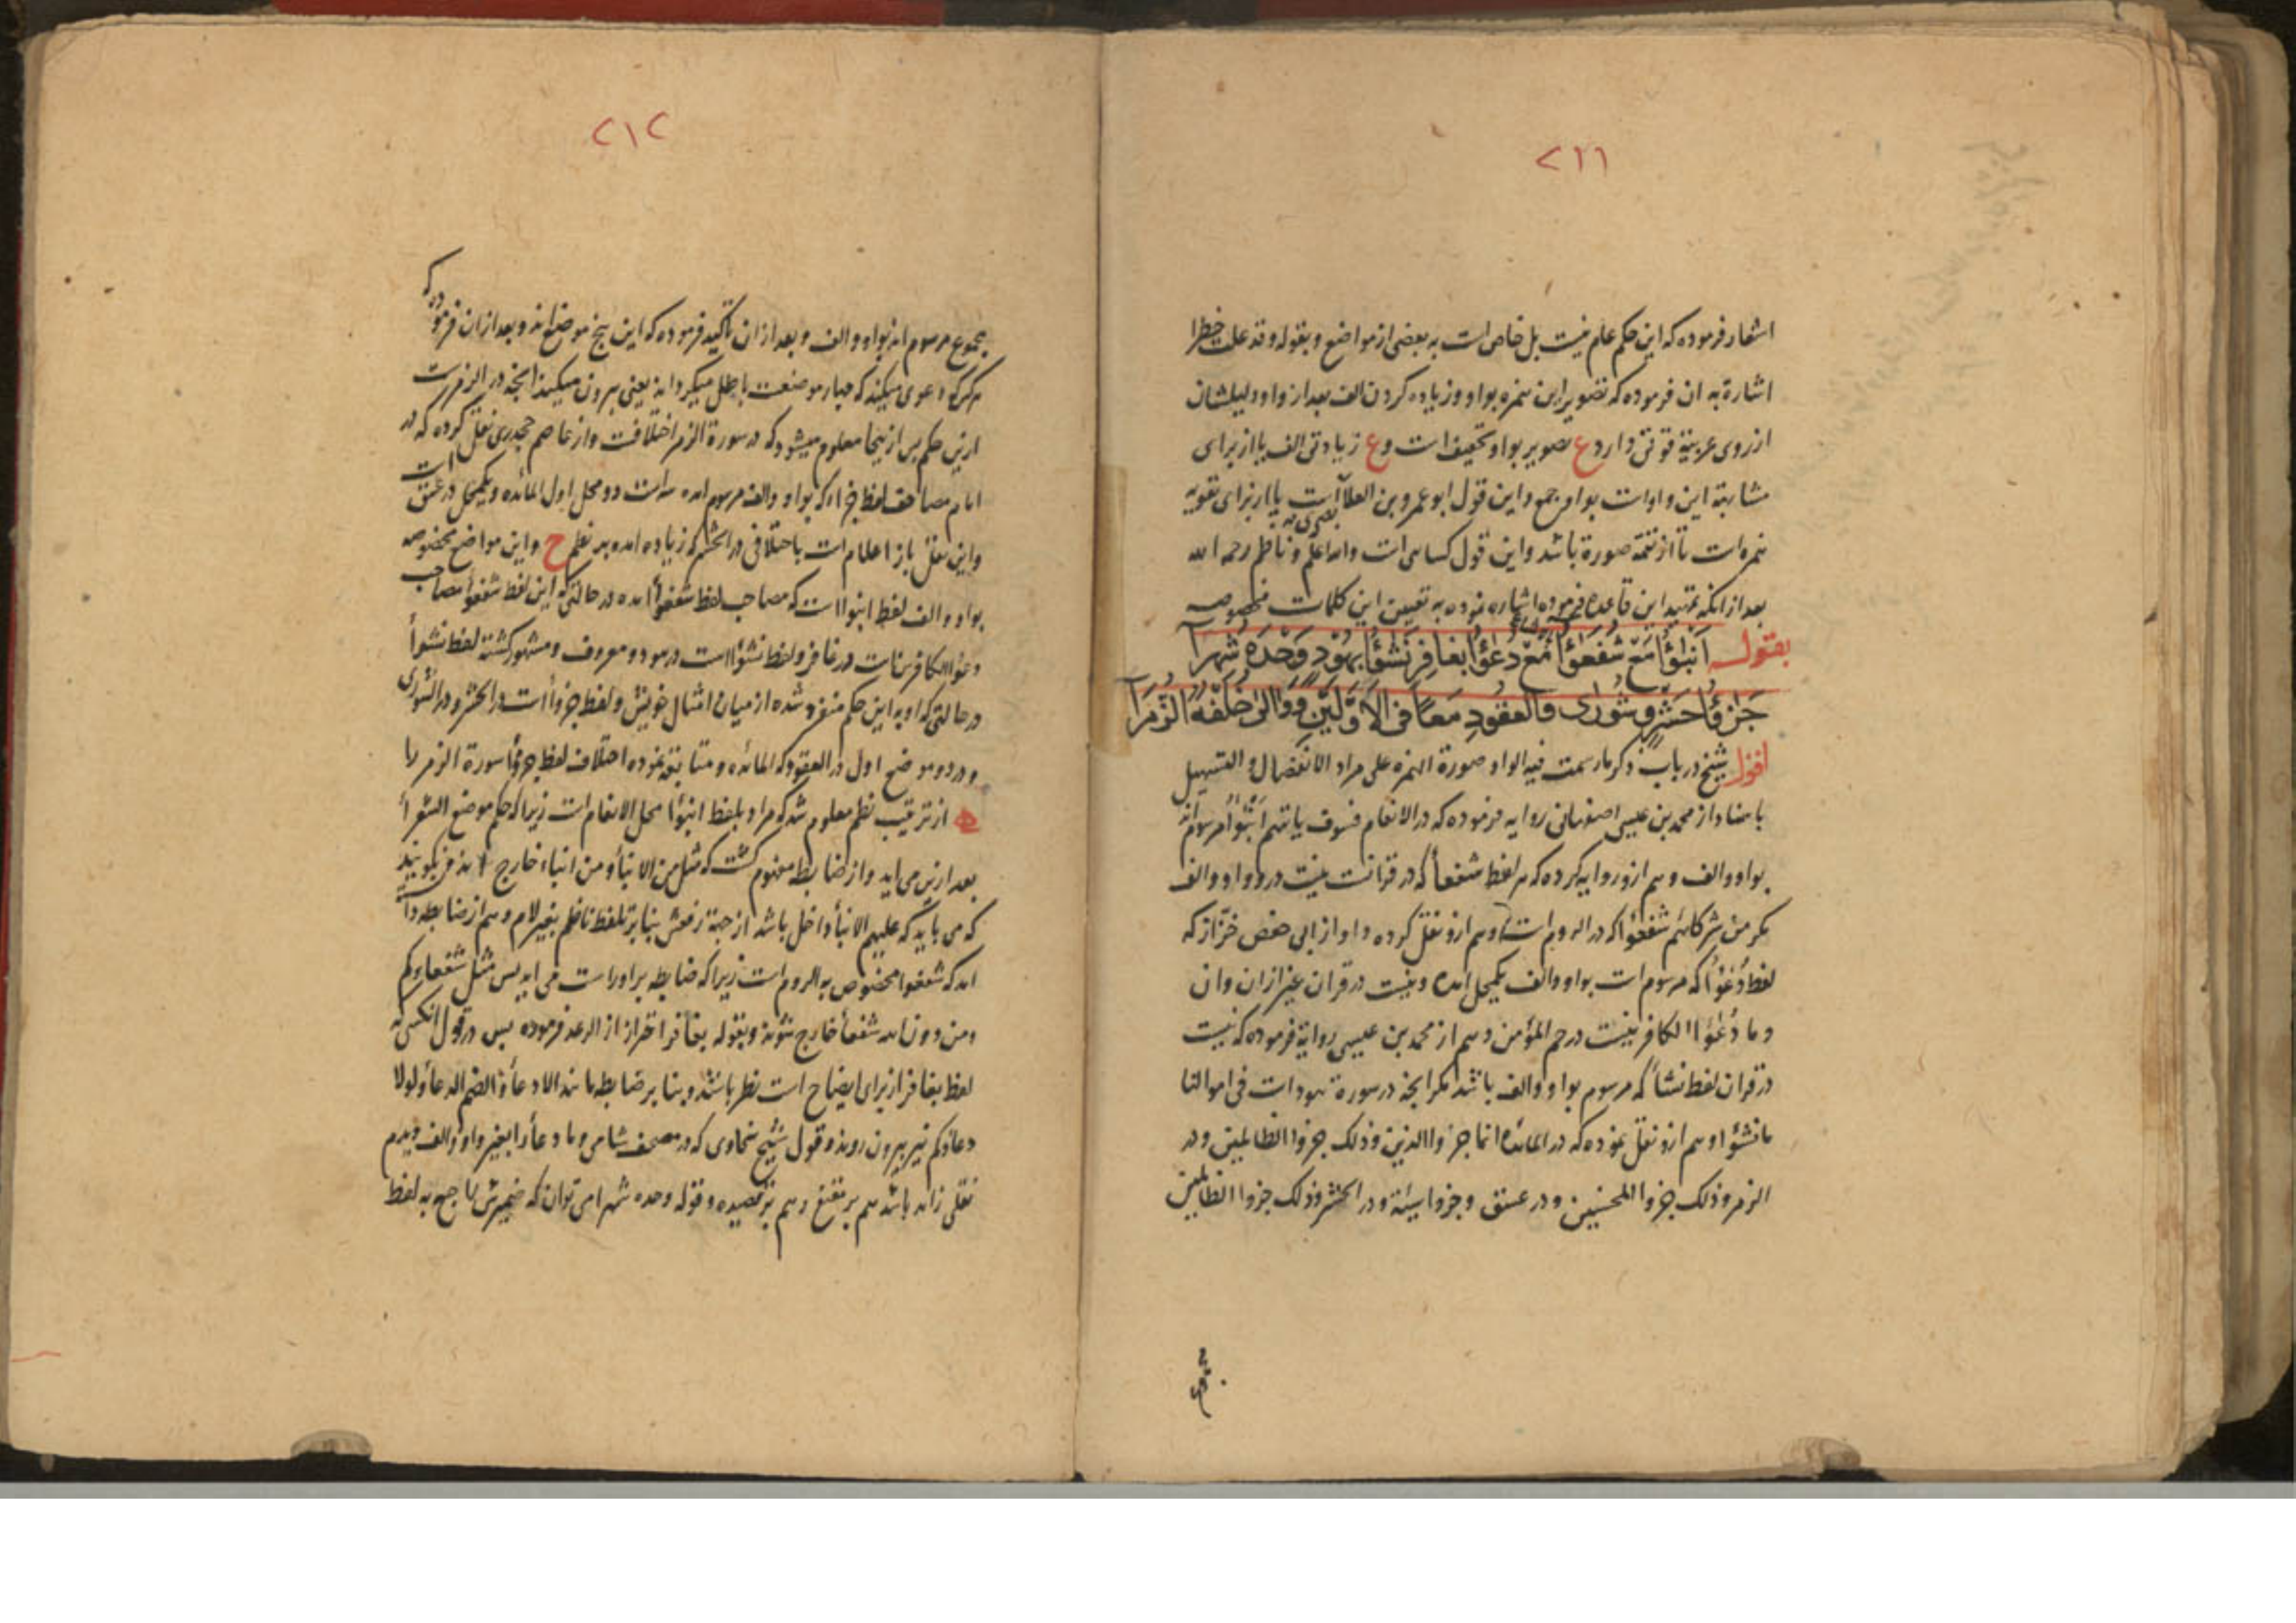 ٢١١
اشعار فرموده که این حکم عام نیست بل خاص است به بعضی از مواضع و بقوله وقد علت خطرا
اشارة به ان فرموده که تصویر این همزه بواو و زیاده کردن الف بعد از واو دلیلشان
از روی عربیة قوتی دارد ع تصویر بواو تخفیف است و ع زیادتی الف یا از برای
مشابهة این واوات بواو جمع و این قول ابو عمرو بن العلا است یا از برای تقویه
همزه است تا از تتمه صورة باشد و این قول کسایی است والله اعلم و ناظم رحمه الله
بعد از انکه تمهید این قاعده فرموده اشاره نموده به تعیین این کلمات مخصوصه
بقوله انبؤا مع شفعؤا مع دعؤا بغافر نشؤا بهود وحده شهرا
جزؤا حشر وشورى والعقود معا في الاولين ووالى خلفه الزمرا
اقول شیخ در باب ذکر ما رسمت فیه الواو صورة الهمزه على مراد الاتصال او التسهیل
باسناد از محمد بن عیسی اصفهانی روایه فرموده که در الانعام فسوف یاتیهم انبؤا مرسوم اند
بواو والف و هم ازو روایه کرده که هر لفظ شفعا که در قرانست نیست درو واو والف
مکر من شرکائهم شفعؤا که در الروم است و هم ازو نقل کرده و او از ابی حفص خزاز که
لفظ دعؤا که مرسوم است بواو والف یکمحل امده و نیست در قران غیر ازان وان
وما دعؤا الکافرینست در حم المؤمن و هم از محمد بن عیسی روایة فرموده که نیست
در قران لفظ نشا که مرسوم بواو والف باشد مکر انچه در سورة هود است فی اموالنا
ما نشؤا و هم ازو نقل نموده که در المائده انما جزوا الذین وذلک جزوا الظالمین و در
الزمر وذلک جزوا المحسنین و در عسق وجزوا سیئة و در الحشر وذلک جزوا الظالمین
٢١٢
مجموع مرسوم اند بواو والف و بعد ازان تاکید فرموده که این پنج موضع اند و بعد ازان فرموده که
هرکه دعوی میکند که چهار موضعست باطل میکرداند یعنی بیرون میکند انچه در الزمرست
ازین حکم پس ازینجا معلوم میشود که در سورة الزمر اختلافست و از عاصم جحدری نقل کرده که در
امام مصاحف لفظ جزاء که بواو والف مرسوم امده سه است دو محل اول المائده و یکمحل در عسق است
و این نقل باز اعلام است باختلافی در الحشر که زیاده امده بر نظم ح و این مواضع مخصوصه
بواو والف لفظ انبؤا است که مصاحب لفظ شفعؤا امده در حالتی که این لفظ شفعؤا مصاحب
دعؤا الکافرینات در غافر و لفظ نشؤا است در هود و معروف و مشهور کشته لفظ نشؤا
در حالتی که او به این حکم منفرد شده از میان امثال خویش و لفظ جزؤا است در الحشر و در الشوری
و در دو موضع اول در العقود که المائده و متابعة نموده اختلاف لفظ جزؤا سورة الزمر را
از ترتیب نظم معلوم شد که مراد بلفظ انبؤا محل الانعام است زیرا که حکم موضع الشعرا
بعد ازین می اید و از ضابطه مفهوم کشت که مثل من الانبا و من انباء خارج اند
که می باید که علیهم الانبا داخل باشد از جهة رفعش بنابر تلفظ ناظم بغیر لام و هم از ضابطه
امد که شفعوا مخصوص به الروم است زیرا که ضابطه براو راست می اید پس مثل شفعاءکم
و من دون الله شفعا خارج شوند و بقوله بغافر احتراز از الرعد فرموده پس در قول
لفظ بغافر از برای ایضاح است نظر باشد و بنابر ضابطه مانند الا دعا والضم الدعا ولولا
دعاؤکم نیز بیرون روند و قول شیخ سخاوی که در مصحف شامی وما دعا را بغیر واو والف دیدم
نقلی زاید باشد هم بر مقنع و هم بر قصیده و قوله وحده شهرا می توان که ضمیرش راجع به لفظ